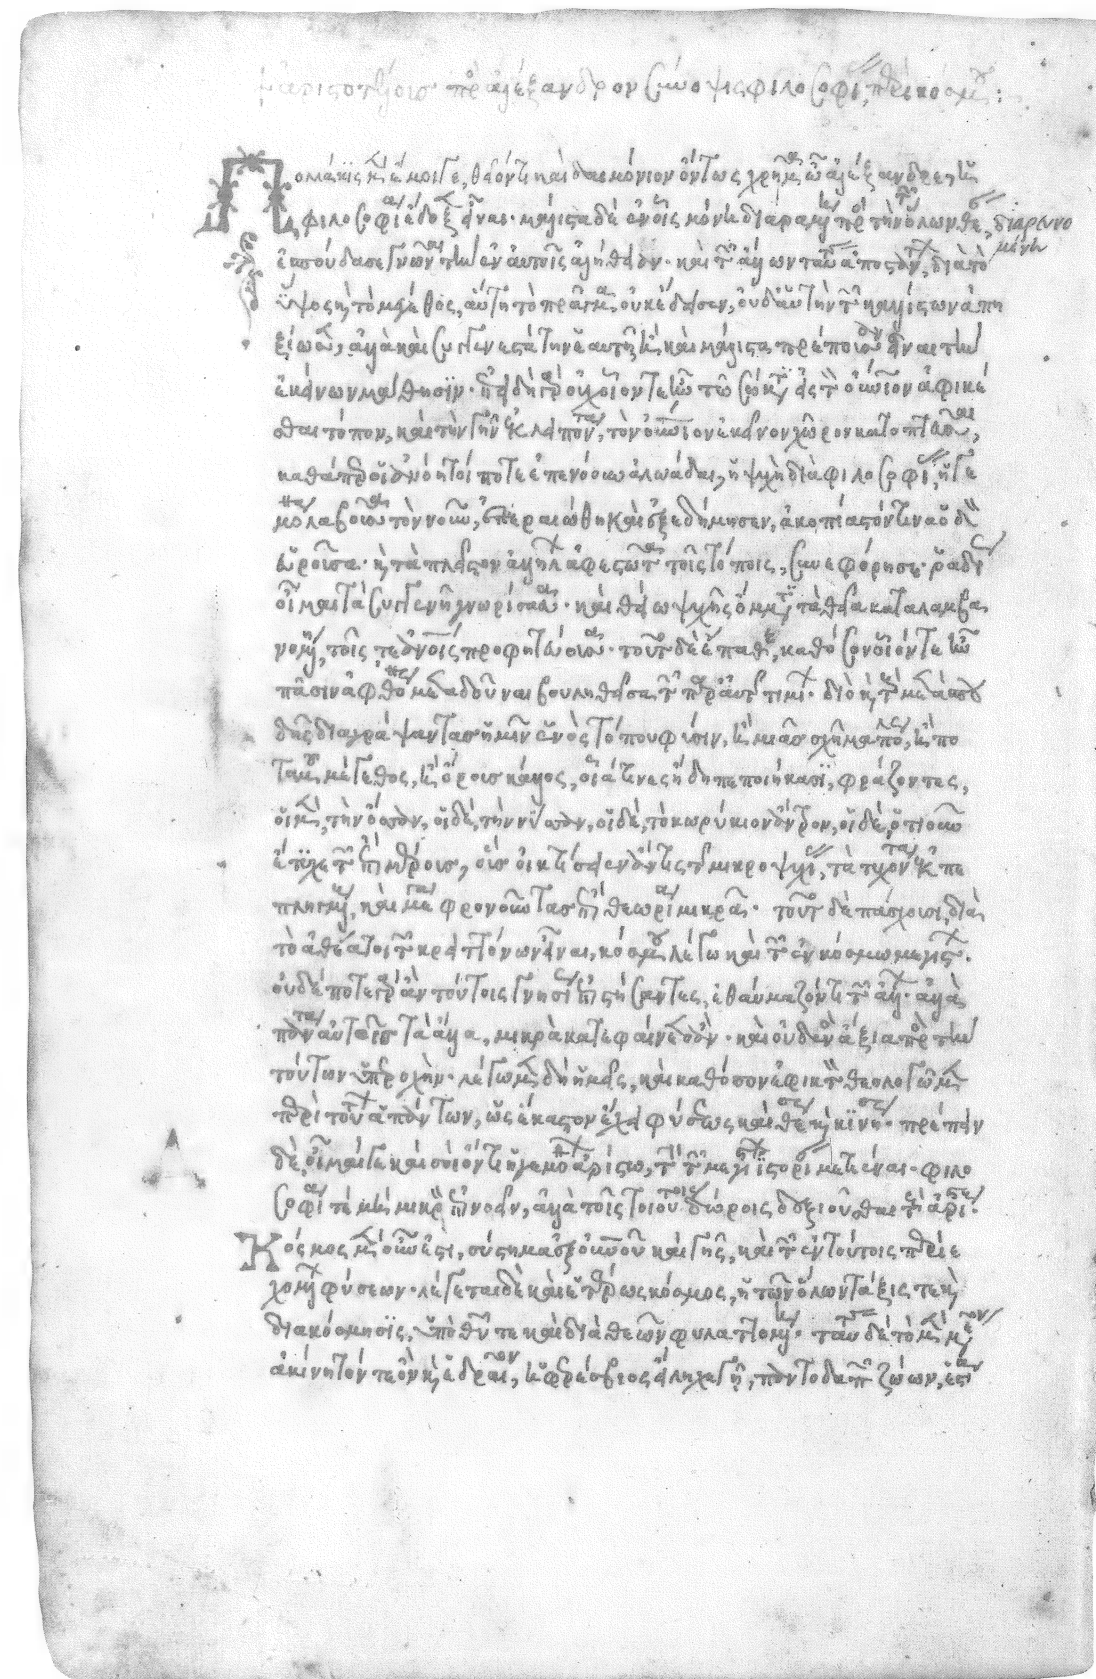 ἀριστοτέλους πρὸς ἀλέξανδρον σύνοψις φιλοσοφίας περὶ κόσμου:
Πολλάκις μὲν ἔμοιγε, θεῖόν τι καὶ δαιμόνιον ὄντως χρῆμα ὦ ἀλέξανδρε, ἡ
φιλοσοφία ἔδοξεν εἶναι· μάλιστα δὲ ἐν οἷς μόνη διαραμένη πρὸς τὴν τῶν ὅλων θέαν,
διαρουμένη
ἐσπούδασε γνῶναι τὴν ἐν αὐτοῖς ἀλήθειαν· καὶ τῶν ἄλλων ταύτης ἀποστάντων, διὰ τὸ
ὕψος καὶ τὸ μέγεθος, αὕτη τὸ πρᾶγμα οὐκ ἔδεισεν, οὐδ' αὑτὴν τῶν καλλίστων ἀπη
ξίωσεν, ἀλλὰ καὶ συγγενεστάτην ἑαυτῇ καὶ μάλιστα πρέπουσαν εἶναι τὴν
ἐκείνων μάθησιν· ἐπειδὴ γὰρ οὐχ οἷόν τε ἦν τῷ σώματι εἰς τὸν οὐράνιον ἀφικέ
σθαι τόπον, καὶ τὴν γῆν ἐκλιπόντα, τὸν οὐράνιον ἐκεῖνον χῶρον κατοπτεῦσαι,
καθάπερ οἱ ἀνόητοί ποτε ἐπενόουν ἀλωάδαι, ἡ ψυχὴ διὰ φιλοσοφίας, ἡγε
μόνα λαβοῦσα τὸν νοῦν, ἐπεραιώθη καὶ ἐξεδήμησεν, ἀκοπίαστόν τινα ὁδὸν
εὑροῦσα· καὶ τὰ πλεῖστον ἀλλήλων ἀφεστῶτα τοῖς τόποις, συνεφόρησε· ῥᾳδίως
οἶμαι τὰ συγγενῆ γνωρίσασα· καὶ θείῳ ψυχῆς ὄμματι τὰ θεῖα καταλαμβα
νομένη, τοῖς τε ἀνθρώποις προφητεύουσα· τοῦτο δὲ ἔπαθε, καθόσον οἷόν τε ἦν
πᾶσιν ἀφθόνως μεταδοῦναι βουληθεῖσα τῶν παρ' αὐτῇ τιμίων· διὸ καὶ τοὺς μετὰ σπου
δῆς διαγράψαντας ἡμῖν ἑνὸς τόπου φύσιν, ἢ μιᾶς σχῆμα πόλεως, ἢ πο
ταμοῦ μέγεθος, ἢ ὄρους κάλλος, οἷά τινες ἤδη πεποιήκασι, φράζοντες,
οἱ μὲν, τὴν ὄσσαν, οἱ δὲ, τὴν νύσσαν, οἱ δὲ, τὸ κωρύκιον ἄντρον, οἱ δὲ, ὁτιοῦν
ἔτυχε τῶν ἐπὶ μέρους, οἰκτίσειεν ἄν τις τῆς μικροψυχίας, τὰ τυχόντα ἐκπε
πληγμένους, καὶ μέγα φρονοῦντας ἐπὶ θεωρίᾳ μικρᾷ· τοῦτο δὲ πάσχουσι, διὰ
τὸ ἀθέατοι τῶν κρειττόνων εἶναι, κόσμου λέγω καὶ τῶν ἐν κόσμῳ μεγίστων·
οὐδέποτε γὰρ ἂν τούτοις γνησίως ἐπιστήσαντες, ἐθαύμαζόν τι τῶν ἄλλων· ἀλλὰ
πάντα αὐτοῖς τὰ ἄλλα, μικρὰ κατεφαίνετο ἄν· καὶ οὐδενὸς ἄξια πρὸς τὴν
τούτων ὑπεροχήν· λέγωμεν δὴ ἡμεῖς, καὶ καθόσον ἐφικτὸν θεολογῶμεν
περὶ τούτων ἁπάντων, ὡς ἕκαστον ἔχει φύσεως καὶ θέσεως καὶ κινήσεως· πρέπειν
δὲ οἶμαί γε καὶ σοὶ ὄντι ἡγεμόνων ἀρίστῳ, τὴν τῶν μεγίστων ἱστορίαν μετιέναι· φιλο
σοφίᾳ τε μὴ μικρὸν ἐπινοεῖν, ἀλλὰ τοῖς τοιούτοις δώροις δεξιοῦσθαι τοὺς ἀρίστους·
Κόσμος μὲν οὖν ἐστι, σύστημα ἐξ οὐρανοῦ καὶ γῆς, καὶ τῶν ἐν τούτοις περιε
χομένων φύσεων· λέγεται δὲ καὶ ἑτέρως κόσμος, ἡ τῶν ὅλων τάξις τε καὶ
διακόσμησις, ὑπὸ θεῶν τε καὶ διὰ θεῶν φυλαττομένη· ταύτης δὲ τὸ μὲν μέσον
ἀκίνητόν τε ὂν καὶ ἑδραῖον, ἡ φερέσβιος εἴληχε γῆ, παντοδαπῶν ζώων, ἑστία